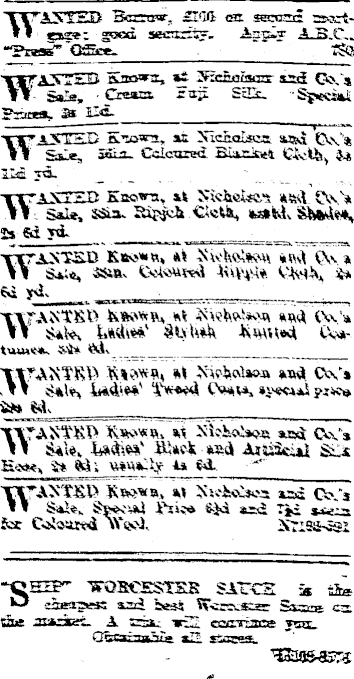 WANTED Borrow, £100 on second mort-
gage; good security. Apply A.B.C.,
"Press" Office. 780
WANTED Known, at Nicholson and Co.'s
Sale, Cream Fuji Silk. Special
Prices, 11d.
WANTED Known, at Nicholson and Co.'s
Sale, Coloured Blanket Cloth,
11d yd.
WANTED Known, at Nicholson and Co.'s
Sale, 38in. Cloth, Shades,
2s 6d yd.
WANTED Known, at Nicholson and Co.'s
Sale, 38in. Coloured Ripple Cloth,
6d yd.
WANTED Known, at Nicholson and Co.'s
Sale, Ladies' Stylish Knitted Cos-
tumes, 6d.
WANTED Known, at Nicholson and Co.'s
Sale, Ladies' Tweed Coats, special price
6d.
WANTED Known, at Nicholson and Co.'s
Sale, Ladies' Black and Artificial Silk
Hose, usually 4s 6d.
WANTED Known, at Nicholson and Co.'s
Sale, Special Price and skein
for Coloured Wool.
"SHIP" WORCESTER SAUCE is the
cheapest and best Worcester Sauce on
the market. A trial will convince you.
Obtainable all stores.